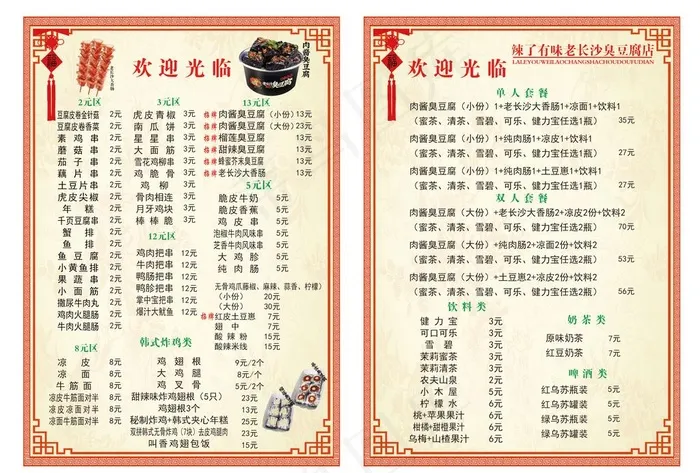 欢迎光临
肉酱臭豆腐
2元区
豆腐皮卷金针菇 2元
豆腐皮卷香菜 2元
素鸡串 2元
蘑菇串 2元
茄子串 2元
藕片串 2元
土豆片串 2元
虎皮尖椒 2元
年糕 2元
千页豆腐串 2元
蟹排 2元
鱼排 2元
鱼豆腐 2元
小黄鱼排 2元
果蔬串 2元
小面筋 2元
撒尿牛肉丸 2元
鸡肉火腿肠 2元
牛肉火腿肠 2元
8元区
凉皮 8元
凉面 8元
牛筋面 8元
凉皮牛筋面对半 8元
凉皮凉面对半 8元
凉面牛筋面对半 8元
3元区
虎皮青椒 3元
南瓜饼 3元
星星串 3元
大面筋 3元
雪花鸡柳串 3元
鸡脆骨 3元
鸡柳 3元
骨肉相连 3元
月牙鸡块 3元
棒棒脆 3元
12元区
鸡肉把串 12元
牛肉把串 12元
鸭肠把串 12元
鸭胗把串 12元
掌中宝把串 12元
爆汁大鱿鱼 12元
13元区
招牌 肉酱臭豆腐（小份）13元
招牌 肉酱臭豆腐（大份）23元
招牌 榴莲臭豆腐 13元
招牌 甜辣臭豆腐 13元
招牌 蜂蜜芥末臭豆腐 13元
招牌 老长沙大香肠 13元
5元区
脆皮牛奶 5元
脆皮香蕉 5元
鸡皮串 5元
泡椒牛肉风味串 5元
芝香牛肉风味串 5元
大鸡胗 5元
纯肉肠 5元
无骨鸡爪藤椒、麻辣、蒜香，柠檬）
（小份） 20元
（大份） 30元
招牌 红皮土豆崽 7元
翅中 7元
酸辣粉 15元
酸辣米线 15元
韩式炸鸡类
鸡翅根 9元/2个
大鸡腿 8元/个
鸡叉骨 5元/个
甜辣味炸鸡翅根（5只） 23元
鸡翅根3个 13元
秘制炸鸡+韩式夹心年糕 25元
双拼韩式无骨炸鸡（7块）去皮鸡腿肉 23元
叫香鸡翅包饭 15元
辣了有味老长沙臭豆腐店
LALEYOUWEILAOCHANGSHACHOUDOUFUDIAN
欢迎光临
单人套餐
肉酱臭豆腐（小份）1+老长沙大香肠1+凉面1+饮料1
（蜜茶、清茶、雪碧、可乐、健力宝任选1瓶） 35元
肉酱臭豆腐（小份）1+纯肉肠1+凉皮1+饮料1
（蜜茶、清茶、雪碧、可乐、健力宝任选1瓶） 27元
肉酱臭豆腐（小份）1+纯肉肠1+土豆崽1+饮料1
（蜜茶、清茶、雪碧、可乐、健力宝任选1瓶） 27元
双人套餐
肉酱臭豆腐（大份）+老长沙大香肠2+凉皮2份+饮料2
（蜜茶、清茶、雪碧、可乐、健力宝任选2瓶） 70元
肉酱臭豆腐（大份）+纯肉肠2+凉面2份+饮料2
（蜜茶、清茶、雪碧、可乐、健力宝任选2瓶） 53元
肉酱臭豆腐（大份）+土豆崽2+凉皮2份+饮料2
（蜜茶、清茶、雪碧、可乐、健力宝任选2瓶） 56元
饮料类
健力宝 3元
可口可乐 3元
雪碧 3元
茉莉蜜茶 3元
茉莉清茶 3元
农夫山泉 2元
小木屋 5元
柠檬水 6元
桃+苹果果汁 6元
柑橘+甜橙果汁 6元
乌梅+山楂果汁 6元
奶茶类
原味奶茶 7元
红豆奶茶 7元
啤酒类
红乌苏瓶装 5元
红乌苏罐装 5元
绿乌苏瓶装 5元
绿乌苏罐装 5元